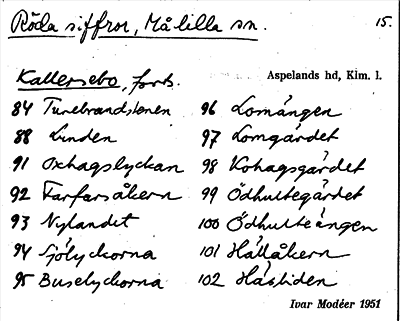 Röda siffror, Målilla sn. 15.
Kallersebo, forts. Aspelands hd, Klm. l.
84 Turebrandstenen
88 Linden
91 Oxhagslyckan
92 Farfarsåkern
93 Nylandet
94 Sjölyckorna
95 Buselyckorna
96 Lomången
97 Lomgärdet
98 Kohagsgärdet
99 Ödhultegärdet
100 Ödhulteängen
101 Hällåkern
102 Hästiden
Ivar Modéer 1951